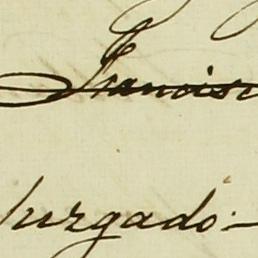 Francisc
Juzgado.—